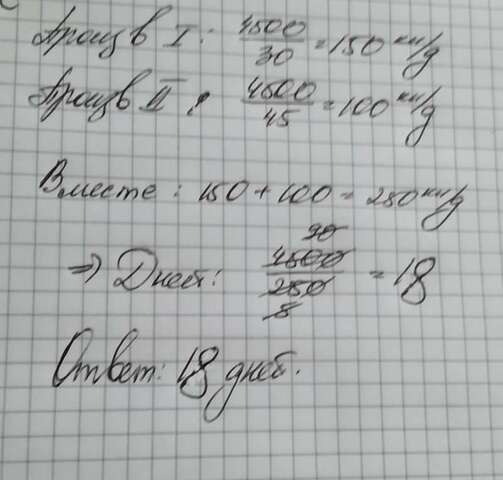 Произв I: 4500/30 = 150 кн/д
Произв II: 4500/45 = 100 кн/д
Вместе: 150 + 100 = 250 кн/д
⇒ Дней: 4500/250 = 18
90
5
Ответ: 18 дней.